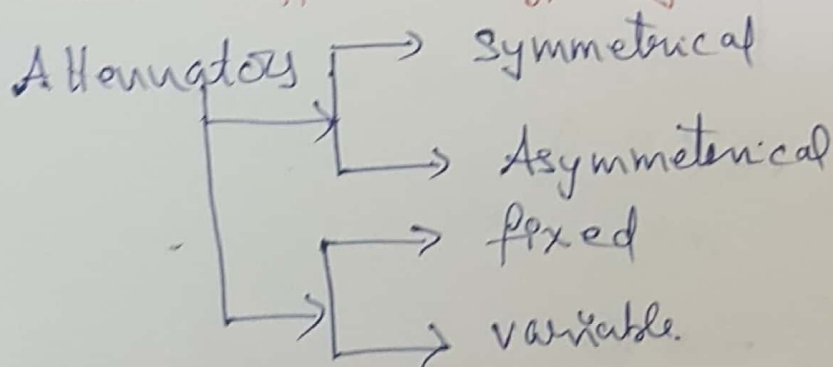 Attenuators
Symmetrical
Asymmeterical
fixed
variable.